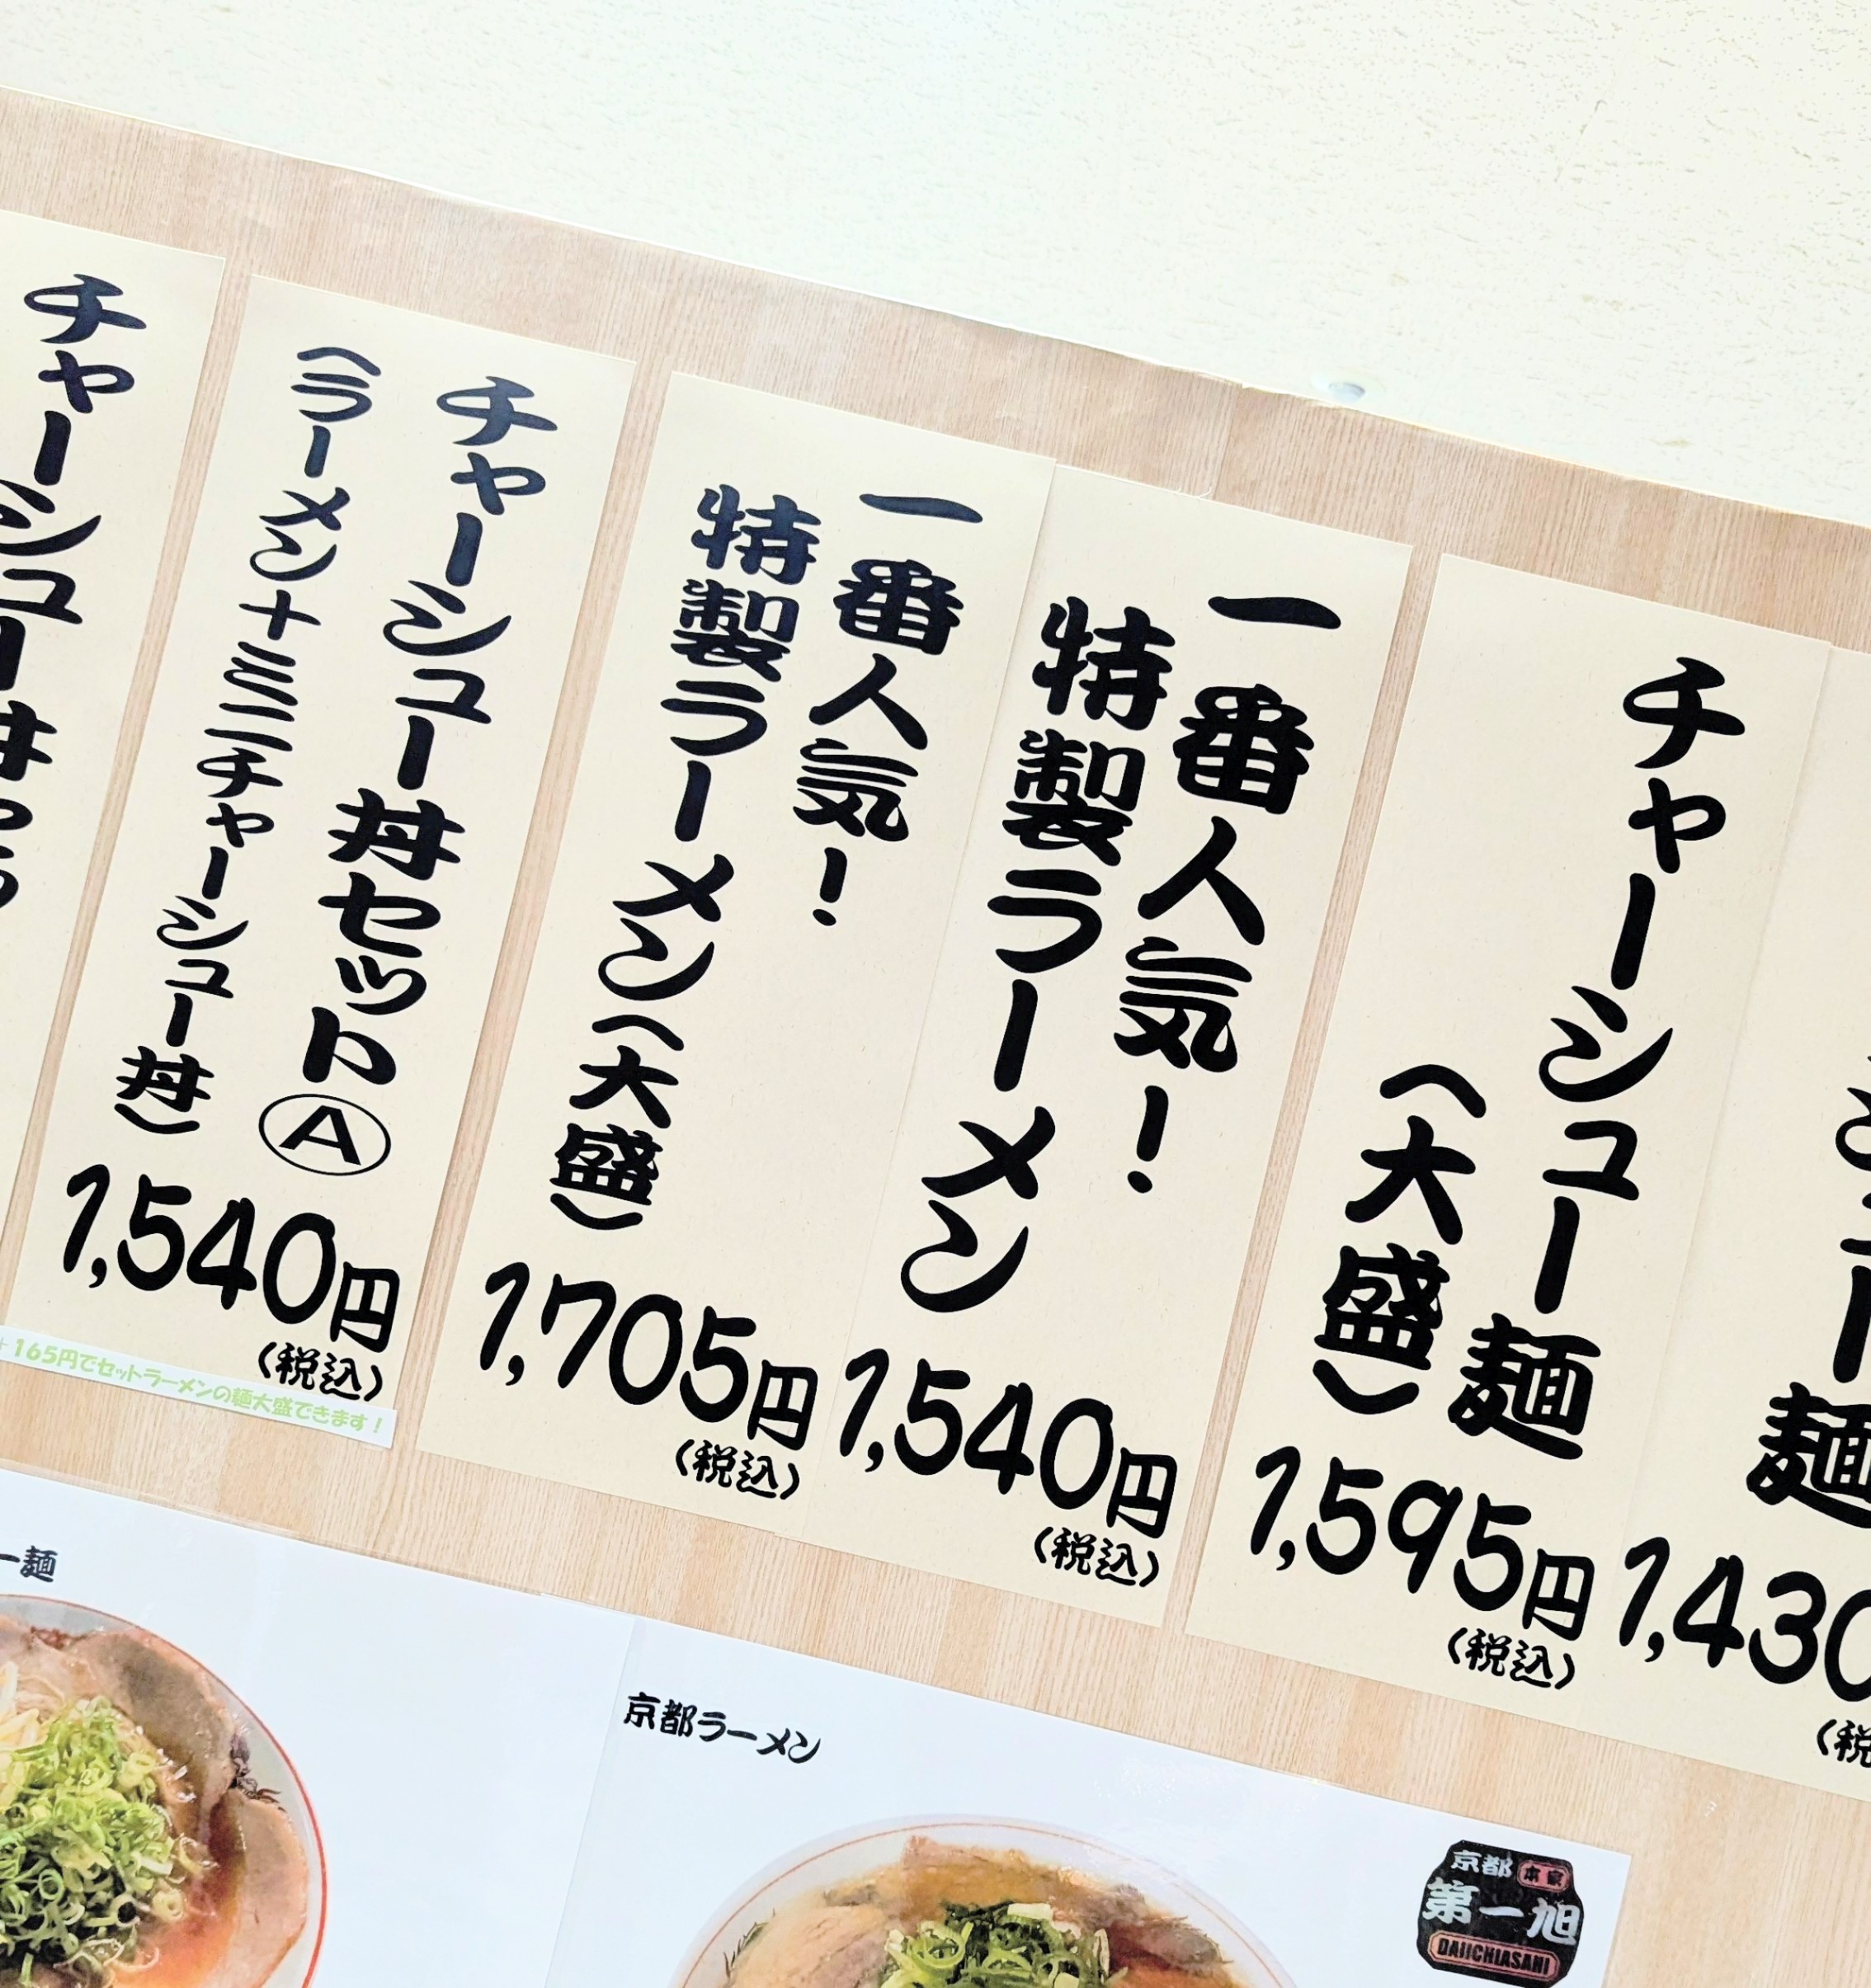 チャーシュー麺
1,430
チャーシュー麺
(大盛)
1,595円
(税込)
一番人気!
特製ラーメン
1,540円
(税込)
一番人気!
特製ラーメン(大盛)
1,705円
(税込)
チャーシュー丼セットⒶ
(ラーメン+ミニチャーシュー丼)
1,540円
(税込)
+165円でセットラーメンの麺大盛できます!
チャーシュー丼セッ
ー麺
京都ラーメン
京都 本家
第一旭
DAIICHIASAHI